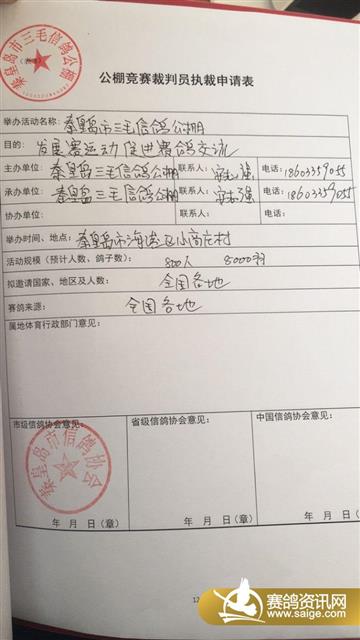 秦皇岛市三毛信鸽公棚
公棚竞赛裁判员执裁申请表
举办活动名称：秦皇岛市三毛信鸽公棚
目的：发展赛运动 促进赛鸽交流
主办单位：秦皇岛三毛信鸽公棚 联系人：宋志强 电话：18603359055
承办单位：秦皇岛三毛信鸽公棚 联系人：宋志强 电话：18603359055
协办单位： 联系人： 电话：
举办时间、地点：秦皇岛市海港区小商庄村
活动规模（预计人数、鸽子数） 800人 8000羽
拟邀请国家、地区及人数： 全国各地
赛鸽来源： 全国各地
属地体育行政部门意见：
市级信鸽协会意见： 省级信鸽协会意见： 中国信鸽协会意见：
秦皇岛市信鸽协会
年 月 日（章） 年 月 日（章） 年 月 日（章）
赛鸽资讯网
www.saige.com